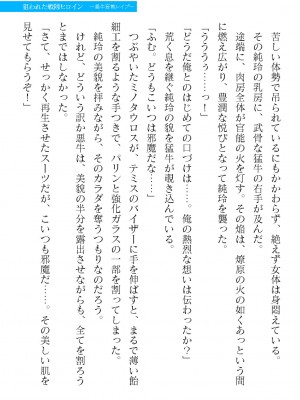 狙われた戦隊ヒロイン
苦しい体勢で吊られているにもかかわらず、絶えず女体は身悶えている。
その純玲の乳房に、武骨な猛牛の右手が及んだ。
途端に、肉房全体が官能の火を灯す。その焔は、燎原の火の如くあっという間
に燃え広がり、豊潤な悦びとなって純玲を襲った。
「うううう……っ！」
「どうだ俺とのはじめての口づけは……。俺の熱烈な想いは伝わったか？」
荒く息を継ぐ純玲の貌を猛牛が覗き込んでいる。
「ふむ。どうもこいつは邪魔だな……」
つぶやいたミノタウロスが、テミスのバイザーに手を伸ばすと、まるで薄い飴
細工を割るような手つきで、パリンと強化ガラスの一部を割ってしまった。
純玲の美貌を拝みながら、そのカラダを奪うつもりなのだろう。
けれど、どういう訳か悪牛は、美貌の半分を露出させながらも、全てを割ろう
とまではしなかった。
「さて、せっかく再生させたスーツだが、こいつも邪魔だ……。その美しい肌を
見せてもらうぞ！」